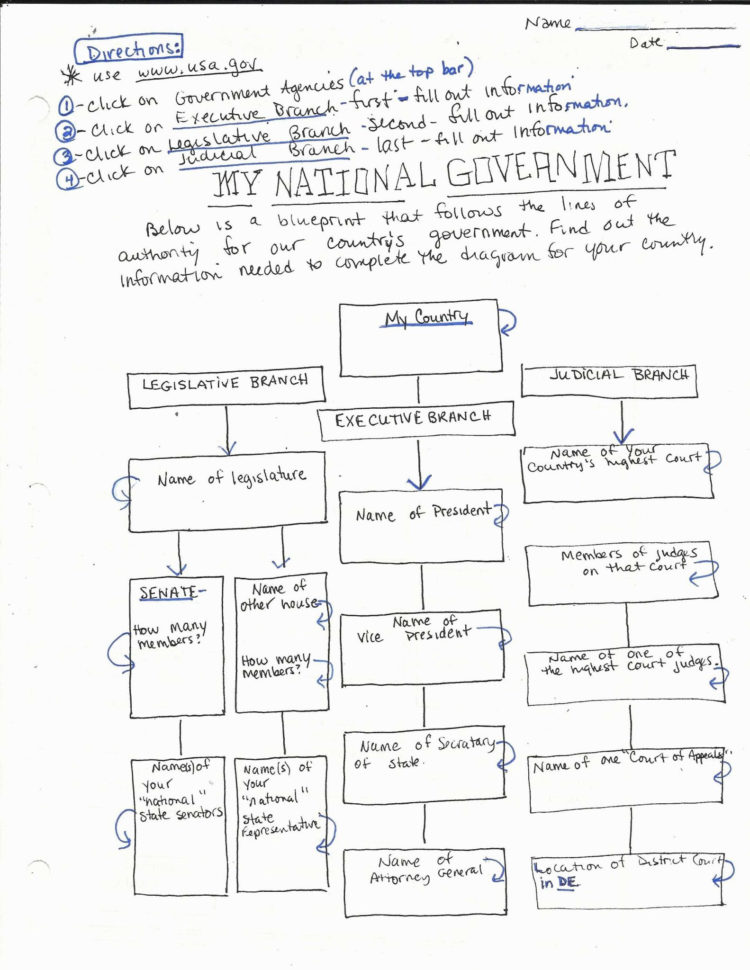 Name
Date
Directions:
* use www.usa.gov
1 - click on Government Agencies (at the top bar)
2 - click on Executive Branch - first - fill out information
3 - click on Legislative Branch - second - fill out information.
4 - click on Judicial Branch - last - fill out information
MY NATIONAL GOVERNMENT
Below is a blueprint that follows the lines of
authority for our country's government. Find out the
information needed to complete the diagram for your country.
My Country
LEGISLATIVE BRANCH
EXECUTIVE BRANCH
JUDICIAL BRANCH
Name of legislature
SENATE-
How many
members?
Name of
other house
How many
members?
Name(s) of
your
"national"
state senators
Name(s) of
your
"national"
State
Representative
Name of President
Name of
Vice President
Name of Secratary
of State.
Name of
Attorney General
Name of your
Country's highest court
Members of judges
on that court
Name of one of
the highest court judges.
Name of one "Court of Appeals"
Location of District Court
in DE